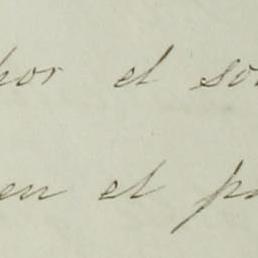 por el so
en el p